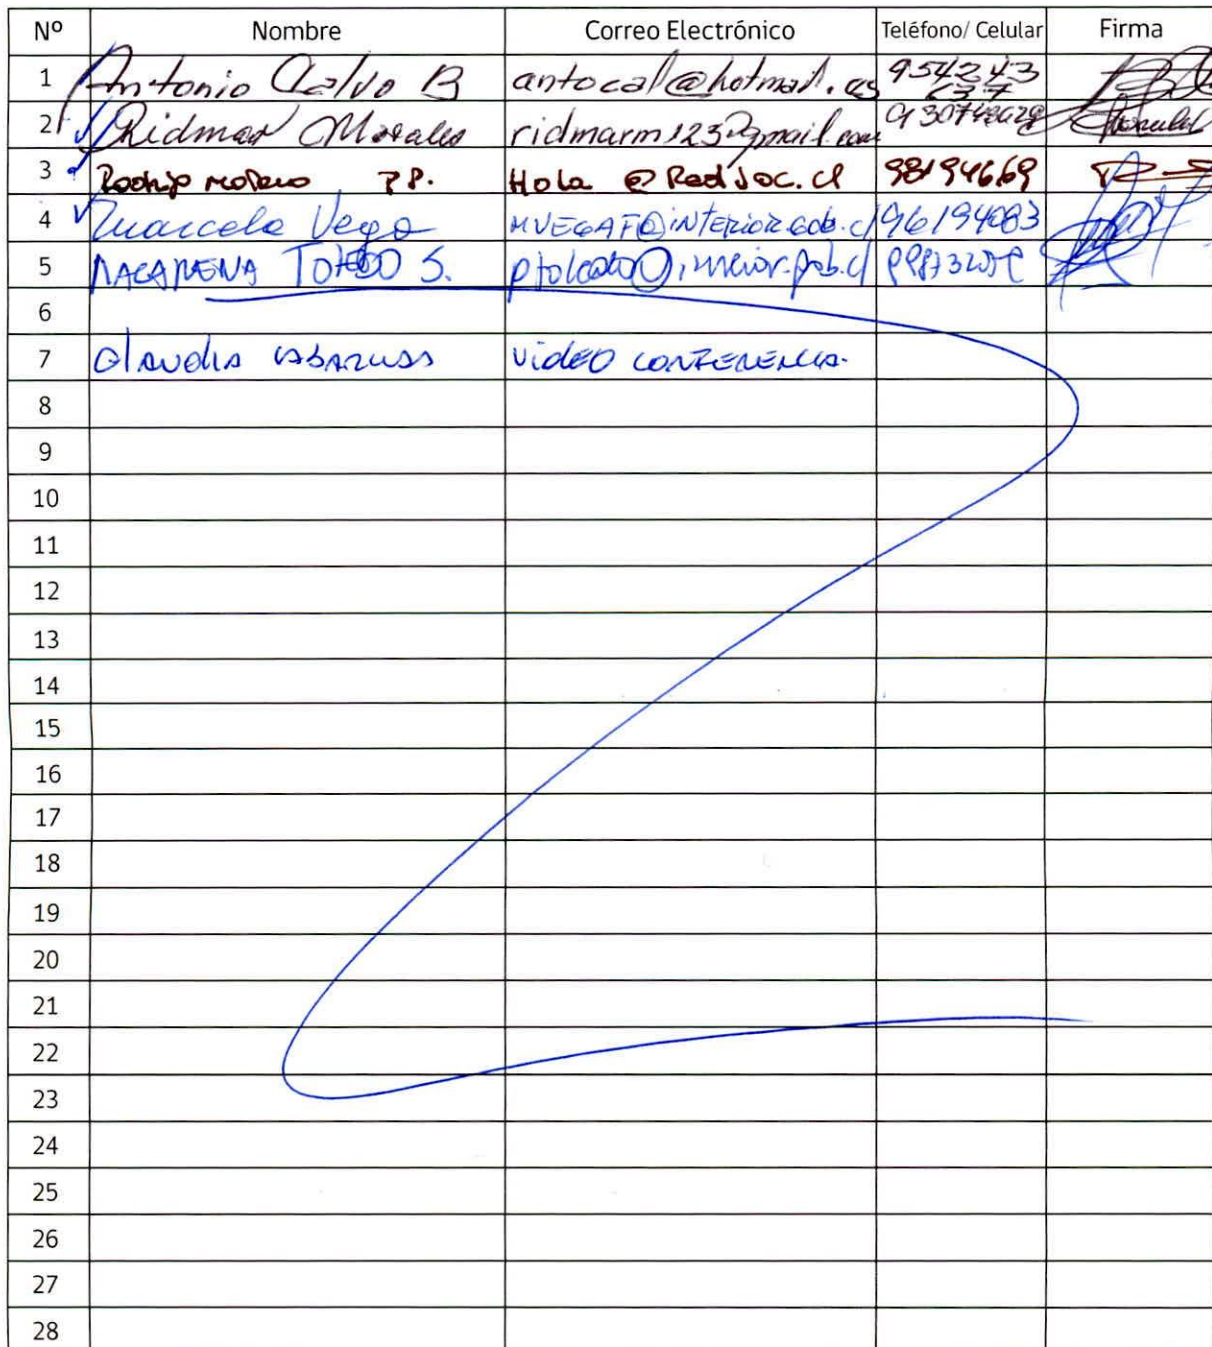 Nº Nombre Correo Electrónico Teléfono/ Celular Firma
1 Antonio Calvo B antocal@hotmail.es 954243
2 Ridmar Morales ridmarm123@gmail.com
3 Rodrigo Moreno Hola @ RedJoc.cl 98194669
4 Marcela Vega MVEGAF@interior.gob.cl 96194083
5 MACARENA TOLEDO S.
6
7 Claudia video conferencia.
8
9
10
11
12
13
14
15
16
17
18
19
20
21
22
23
24
25
26
27
28